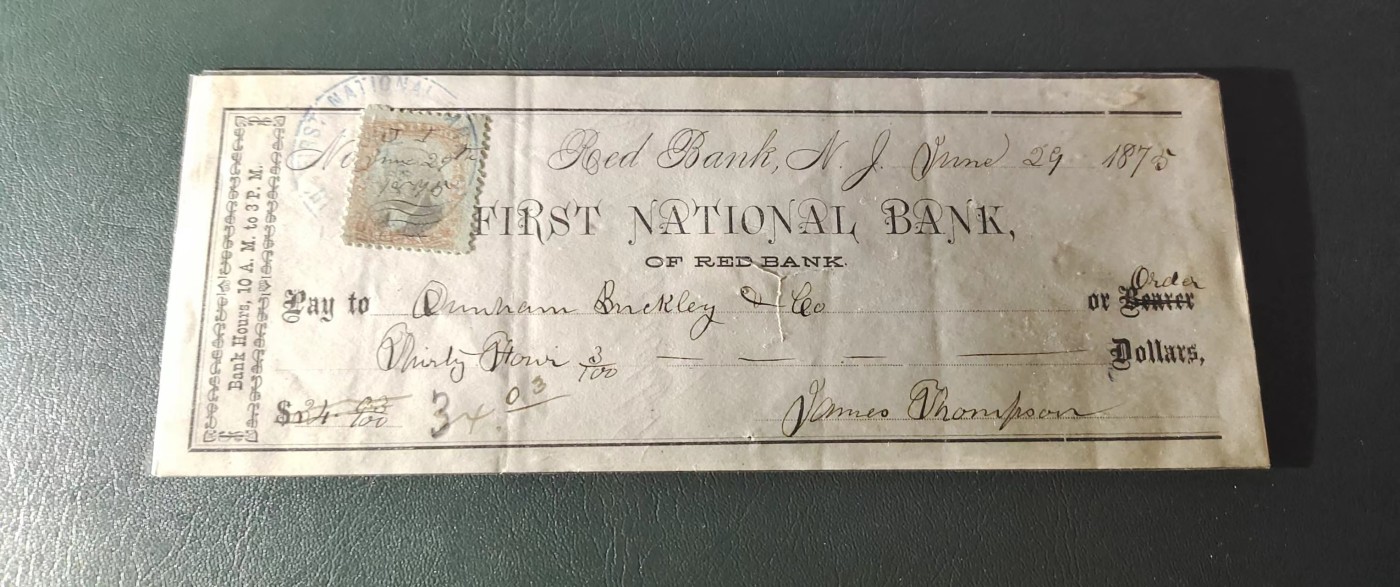 Bank Hours, 10 A. M. to 3 P. M.
FIRST NATIONAL
No.
June 29th
1875
Red Bank, N. J. June 29 1875
FIRST NATIONAL BANK,
OF RED BANK.
Pay to Dunham Buckley & Co or Bearer Order
Thirty Four 3/100 Dollars,
$34.03/100 34.03
James Thompson